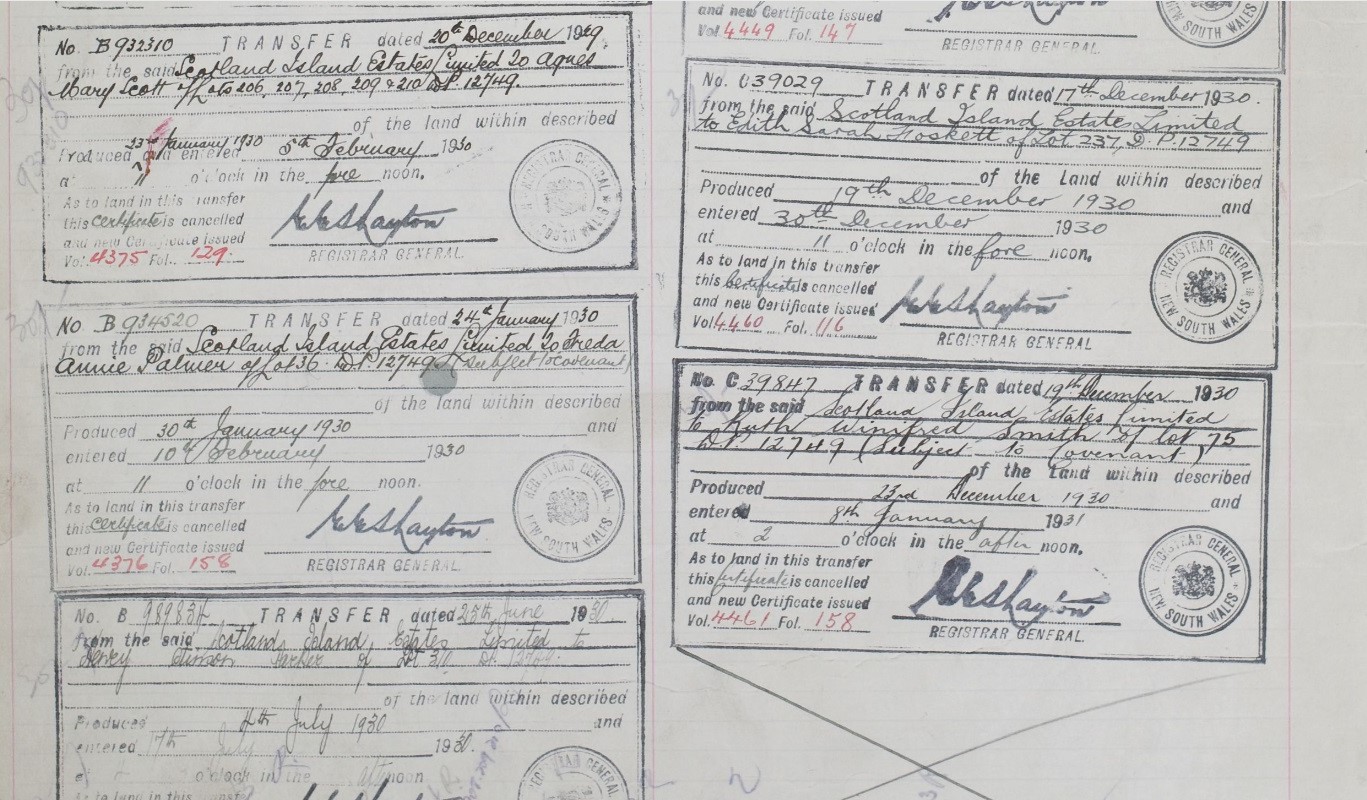 No. B 932310 TRANSFER dated 20th December 1929.
from the said Scotland Island Estates Limited to Agnes
Mary Scott of Lots 206, 207, 208, 209 & 210 D.P. 12749.
of the land within described
Produced and entered 23rd January 1930 5th February 1930
at 11 o'clock in the fore noon.
As to land in this transfer
this certificate is cancelled
and new Certificate issued
Vol. 4375 Fol. 129.
REGISTRAR GENERAL.
REGISTRAR GENERAL
No B 934520 TRANSFER dated 24th January 1930
from the said Scotland Island Estates Limited to Freda
Annie Palmer of Lot 36. D.P. 12749 (subject to covenant)
of the land within described
Produced 30th January 1930 and
entered 10th February 1930
at 11 o'clock in the fore noon.
As to land in this transfer
this certificate is cancelled
and new Certificate issued
Vol. 4376 Fol. 158
REGISTRAR GENERAL.
REGISTRAR GENERAL
NEW SOUTH WALES
No. B TRANSFER dated 25th June 1930
from the said Scotland Island Estates Limited to
Henry Parker of Lot D.P.
of the land within described
Produced 4th July 1930 and
entered 17th July 1930.
at o'clock in the after noon
As to land in this transf
REGISTRAR GENERAL
and new Certificate issued
Vol 4449 Fol. 147
REGISTRAR GENERAL.
NEW SOUTH WALES
No. C 39029 TRANSFER dated 17th December 1930.
from the said Scotland Island Estates Limited
to Edith Sarah Hoskett of Lot 237, D.P. 12749
of the Land within described
Produced 19th December 1930 and
entered 30th December 1930
at 11 o'clock in the fore noon.
As to land in this transfer
this certificate is cancelled
and new Certificate issued
Vol 4460 Fol. 116
REGISTRAR GENERAL.
REGISTRAR GENERAL
NEW SOUTH WALES
No. C 39847 TRANSFER dated 19th December 1930
from the said Scotland Island Estates Limited
to Ruth Winifred Smith of lot 75
D.P. 12749 (Subject to Covenant)
of the Land within described
Produced 23rd December 1930 and
entered 8th January 1931
at 2 o'clock in the after noon.
As to land in this transfer
this certificate is cancelled
and new Certificate issued
Vol. 4461 Fol. 158
REGISTRAR GENERAL.
REGISTRAR GENERAL
NEW SOUTH WALES